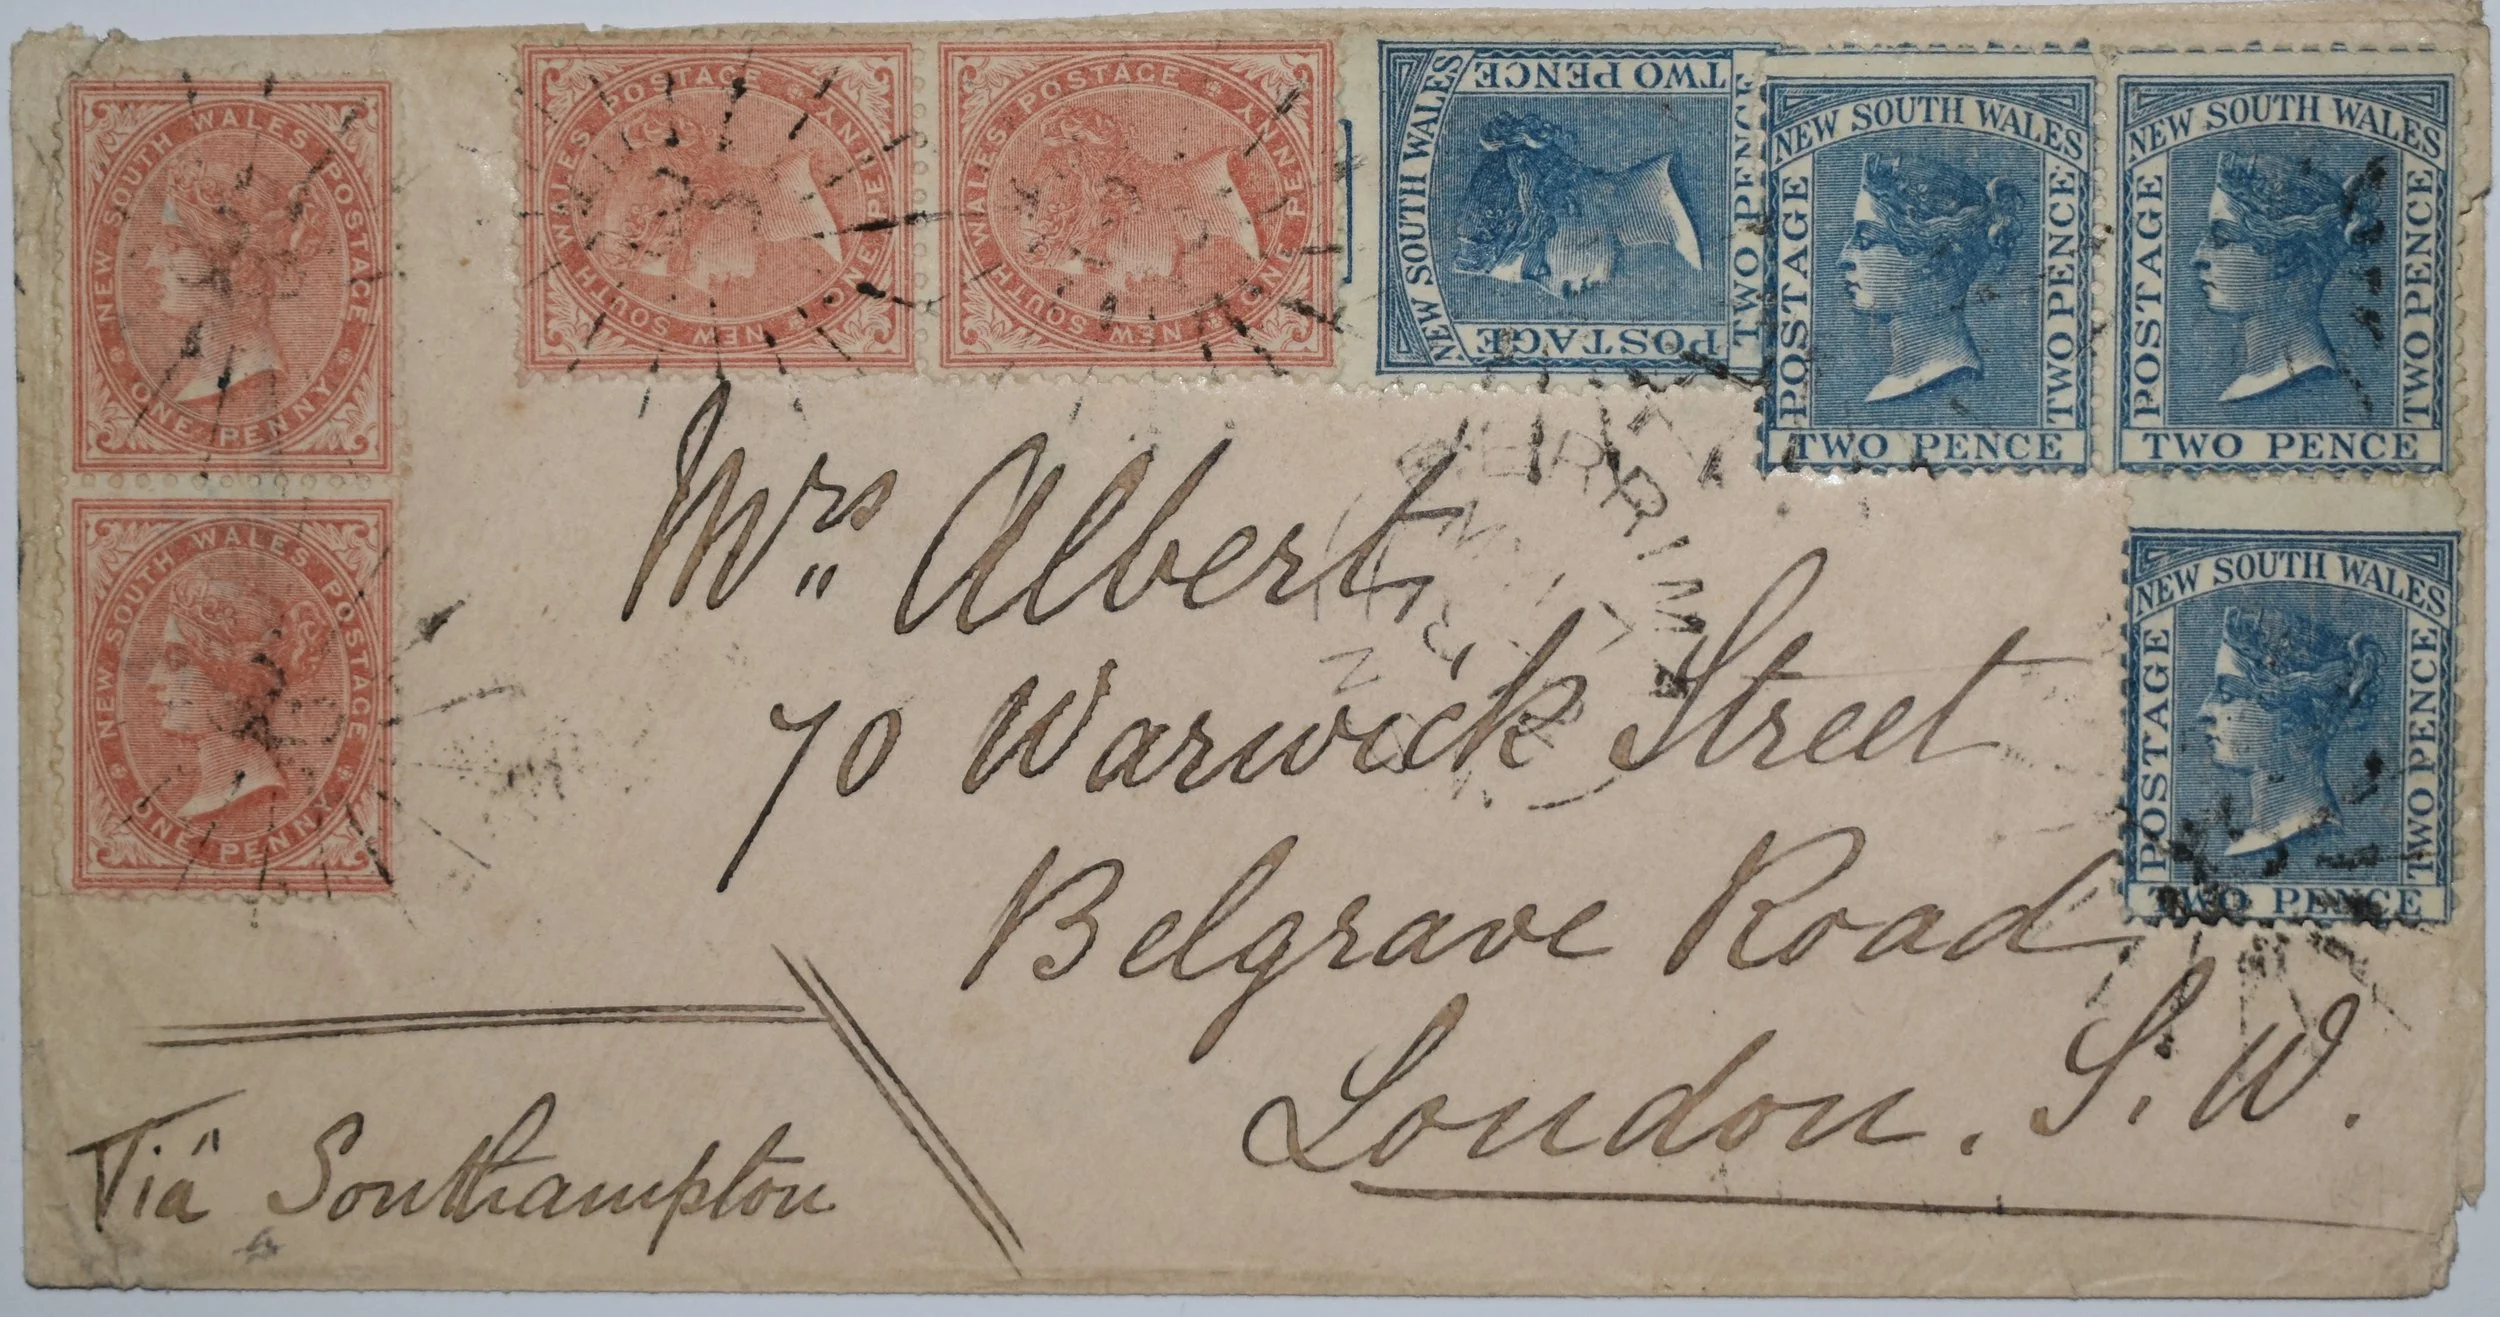 NEW SOUTH WALES POSTAGE
ONE PENNY
NEW SOUTH WALES POSTAGE
ONE PENNY
NEW SOUTH WALES POSTAGE
ONE PENNY
NEW SOUTH WALES POSTAGE
ONE PENNY
NEW SOUTH WALES
POSTAGE
TWO PENCE
TWO PENCE
NEW SOUTH WALES
POSTAGE
TWO PENCE
TWO PENCE
NEW SOUTH WALES
POSTAGE
TWO PENCE
TWO PENCE
NEW SOUTH WALES
POSTAGE
TWO PENCE
TWO PENCE
BERRIMA
Mrs Albert,
70 Warwick Street
Belgrave Road
London. S. W.
Via Southampton